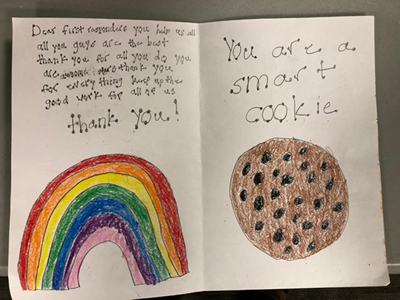 Dear first responders you help us all
all you guys are the best
thank you for all you do you
are thank you
for every thing keep up the
good work for all of us
thank you!
You are a
smart
cookie